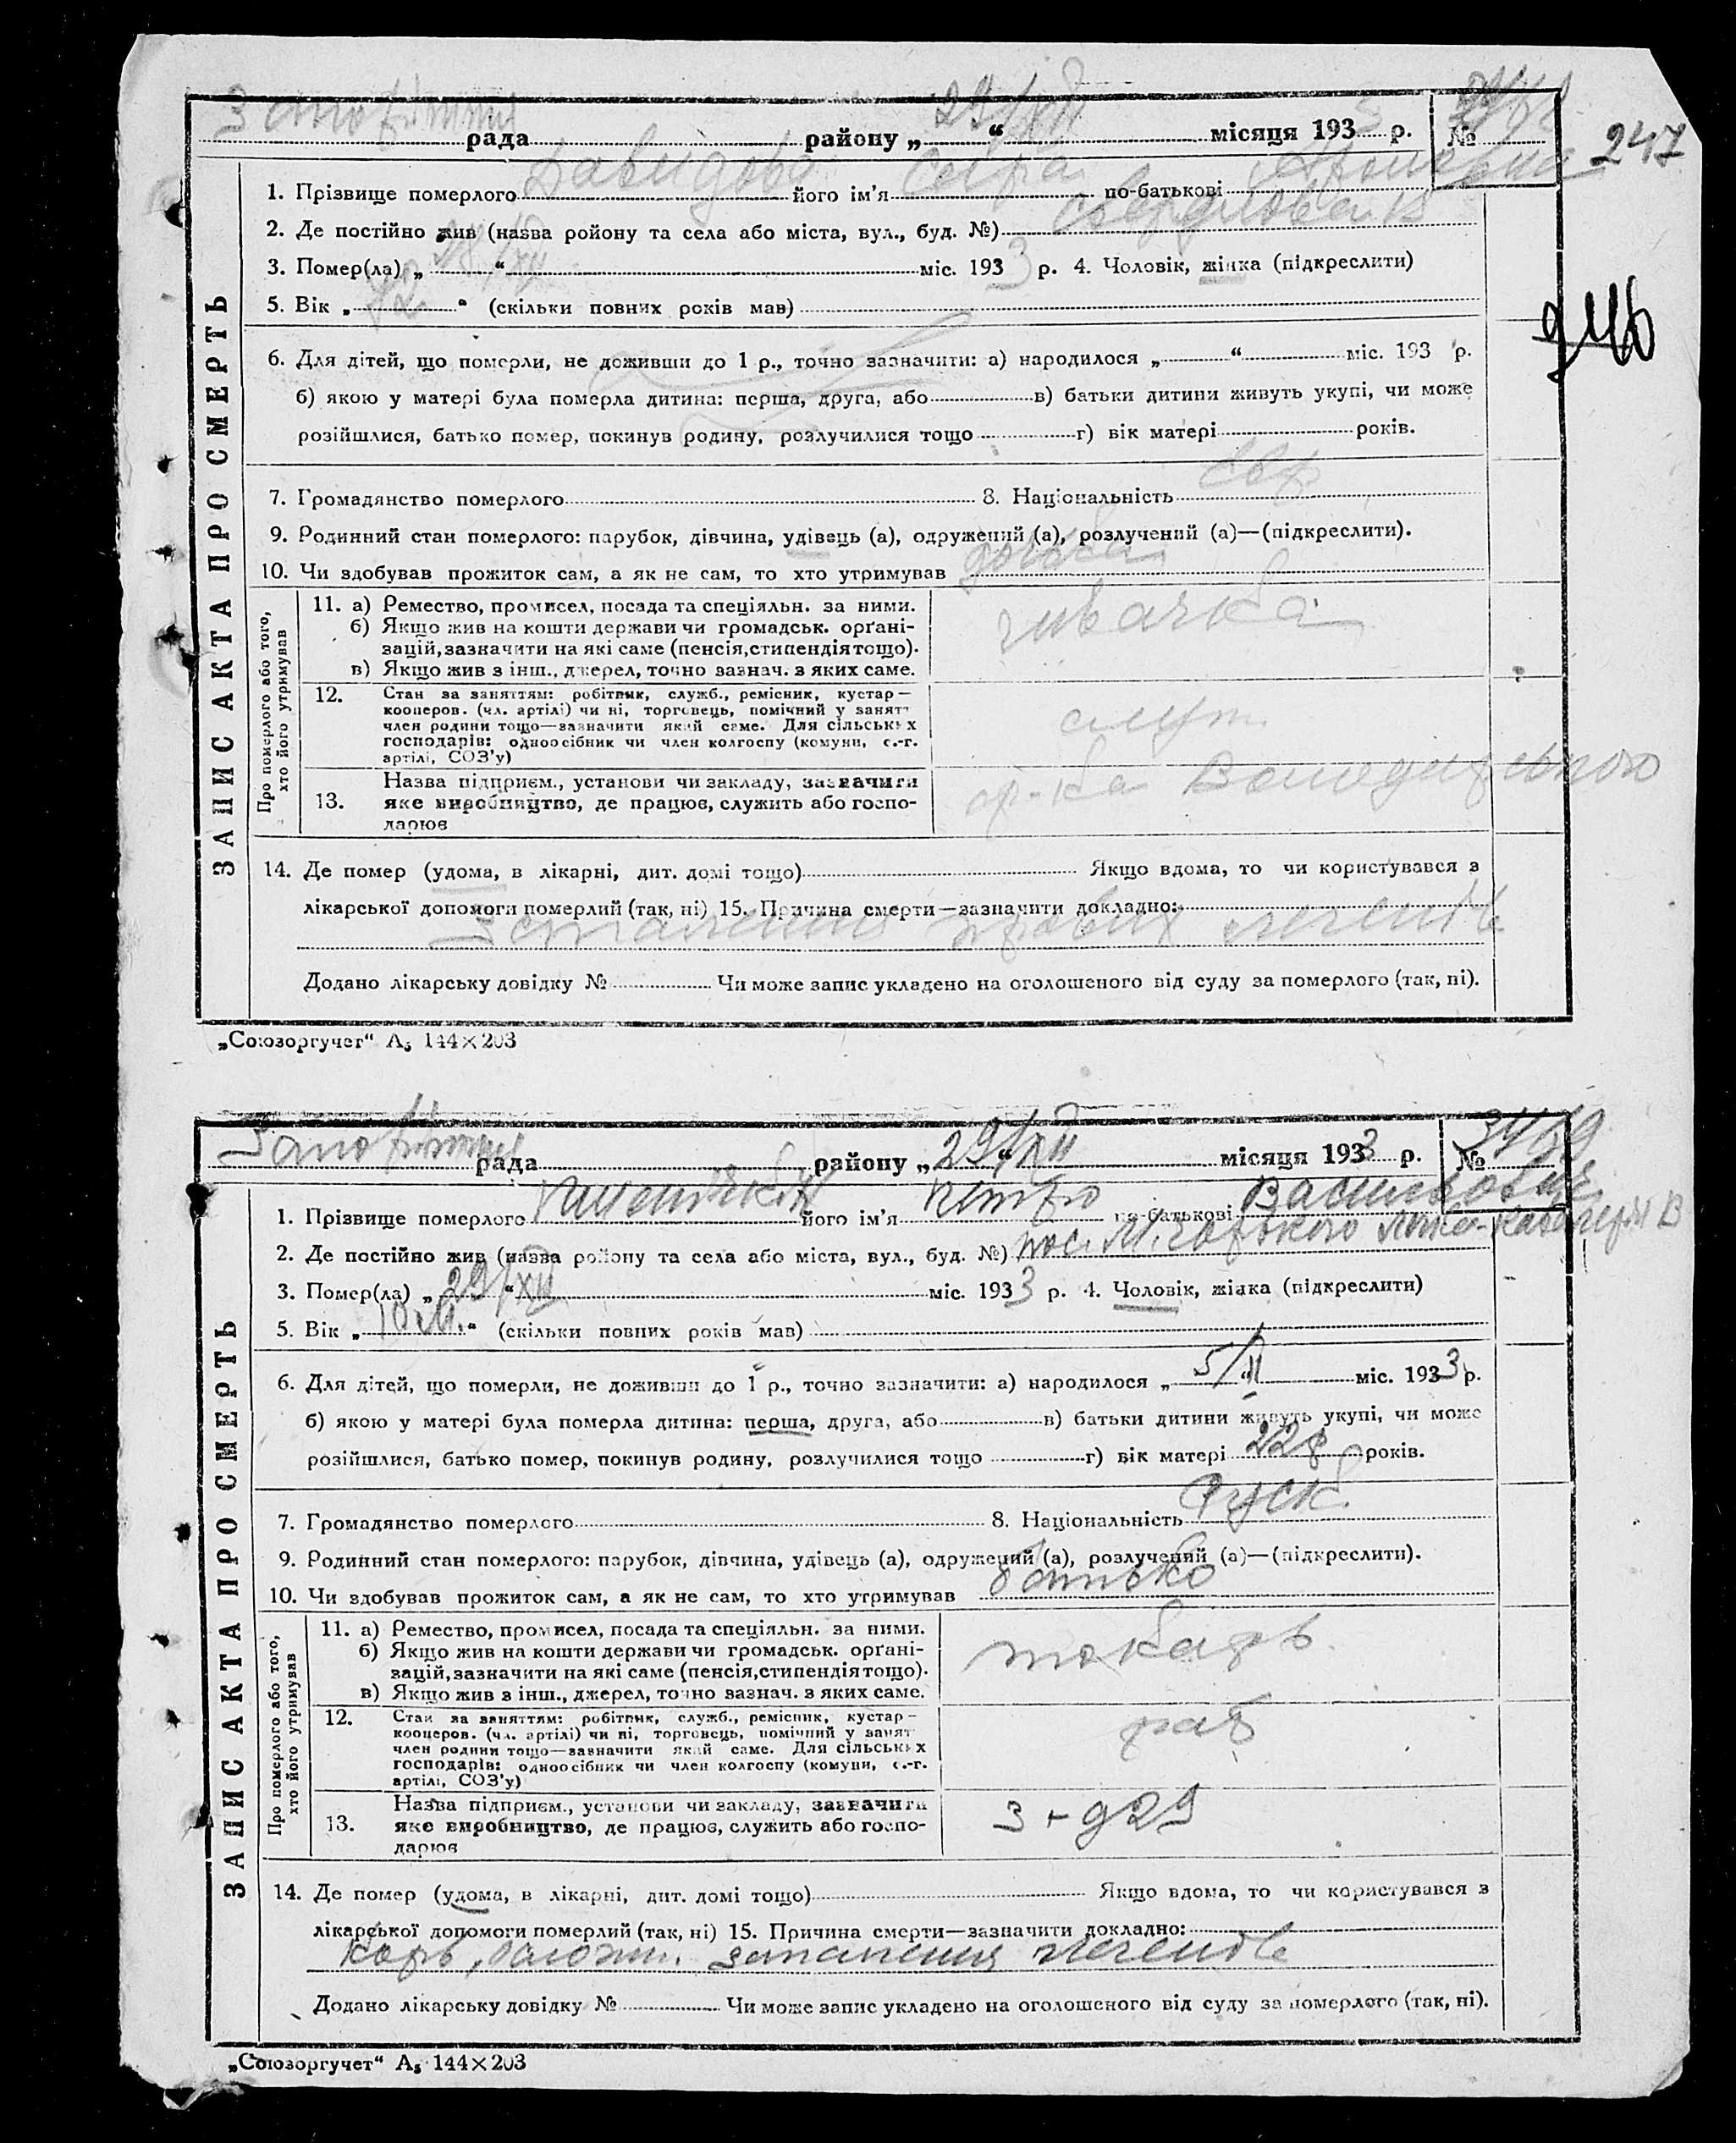 рада району „29/XII“ місяця 193 р. №
247
1. Прізвище померлого Давидова його ім'я Сєіра по-батькові
2. Де постійно жив (назва ройону та села або міста, вул., буд. №)
3. Помер(ла) „28/XII“ міс. 1933 р. 4. Чоловік, жінка (підкреслити)
5. Вік „72“ (скільки повних років мав)
246
6. Для дітей, що померли, не доживши до 1 р., точно зазначити: а) народилося „ “ міс. 193 р.
б) якою у матері була померла дитина: перша, друга, або в) батьки дитини живуть укупі, чи може
розійшлися, батько помер, покинув родину, розлучилися тощо г) вік матері років.
7. Громадянство померлого 8. Національність євр
9. Родинний стан померлого: парубок, дівчина, удівець (а), одружений (а), розлучений (а)—(підкреслити).
10. Чи здобував прожиток сам, а як не сам, то хто утримував дочка
ЗАПИС АКТА ПРО СМЕРТЬ
Про померлого або того, хто його утримував
11. а) Ремество, промисел, посада та спеціяльн. за ними.
б) Якщо жив на кошти держави чи громадськ. орґані-
зацій, зазначити на які саме (пенсія, стипендія тощо).
в) Якщо жив з інш., джерел, точно зазнач. з яких саме.
швачка
12. Стан за заняттям: робітник, служб., ремісник, кустар—
кооперов. (чл. артілі) чи ні, торговець, помічний у занят
член родини тощо—зазначити який саме. Для сільських
господарів: одноосібник чи член колгоспу (комуни, с.-г.
артілі, СОЗ'у)
служ.
13. Назва підприєм., установи чи закладу, зазначити
яке виробництво, де працює, служить або госпо-
дарює
14. Де помер (удома, в лікарні, дит. домі тощо) Якщо вдома, то чи користувався з
лікарської допомоги померлий (так, ні) 15. Причина смерти—зазначити докладно:
запалення правих легенів
Додано лікарську довідку № Чи може запис укладено на оголошеного від суду за померлого (так, ні).
„Союзоргучет“ А₅ 144×203
рада району „29/XII“ місяця 1933 р. №
1. Прізвище померлого його ім'я Петро по-батькові Васильович
2. Де постійно жив (назва ройону та села або міста, вул., буд. №) пос. М. Горького
3. Помер(ла) „29/XII“ міс. 1933 р. 4. Чоловік, жінка (підкреслити)
5. Вік „10 м.“ (скільки повних років мав)
6. Для дітей, що померли, не доживши до 1 р., точно зазначити: а) народилося „5/II“ міс. 1933 р.
б) якою у матері була померла дитина: перша, друга, або в) батьки дитини живуть укупі, чи може
розійшлися, батько помер, покинув родину, розлучилися тощо г) вік матері 22 р років.
7. Громадянство померлого 8. Національність Руск.
9. Родинний стан померлого: парубок, дівчина, удівець (а), одружений (а), розлучений (а)—(підкреслити).
10. Чи здобував прожиток сам, а як не сам, то хто утримував батько
ЗАПИС АКТА ПРО СМЕРТЬ
Про померлого або того, хто його утримував
11. а) Ремество, промисел, посада та спеціяльн. за ними.
б) Якщо жив на кошти держави чи громадськ. орґані-
зацій, зазначити на які саме (пенсія, стипендія тощо).
в) Якщо жив з інш., джерел, точно зазнач. з яких саме.
токарь
12. Стан за заняттям: робітник, служб., ремісник, кустар—
кооперов. (чл. артілі) чи ні, торговець, помічний у занят
член родини тощо—зазначити який саме. Для сільських
господарів: одноосібник чи член колгоспу (комуни, с.-г.
артілі, СОЗ'у)
раб
13. Назва підприєм., установи чи закладу, зазначити
яке виробництво, де працює, служить або госпо-
дарює
з-д 29
14. Де помер (удома, в лікарні, дит. домі тощо) Якщо вдома, то чи користувався з
лікарської допомоги померлий (так, ні) 15. Причина смерти—зазначити докладно:
Корь, запалення легенів
Додано лікарську довідку № Чи може запис укладено на оголошеного від суду за померлого (так, ні).
„Союзоргучет“ А₅ 144×203